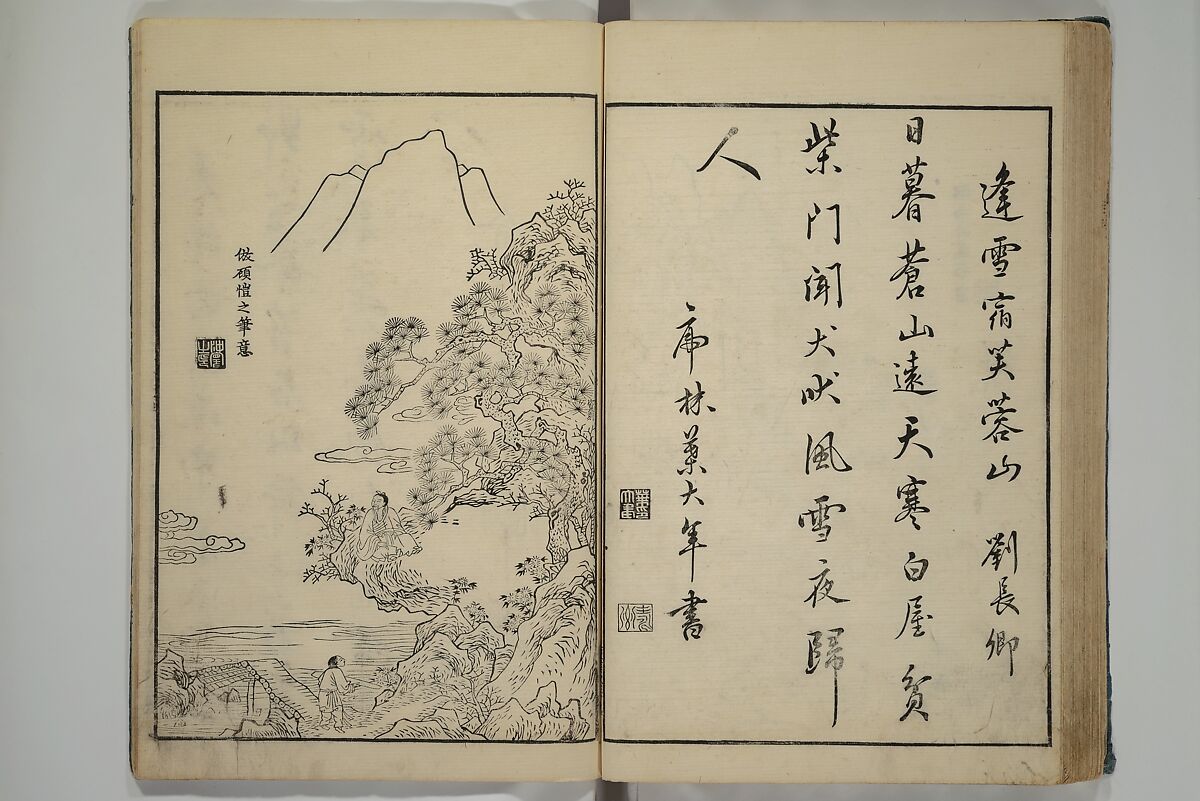 逢雪宿芙蓉山 劉長卿
日暮蒼山遠天寒白屋貧
柴門聞犬吠風雪夜歸
人
虎林葉大年書
倣顧愷之筆意